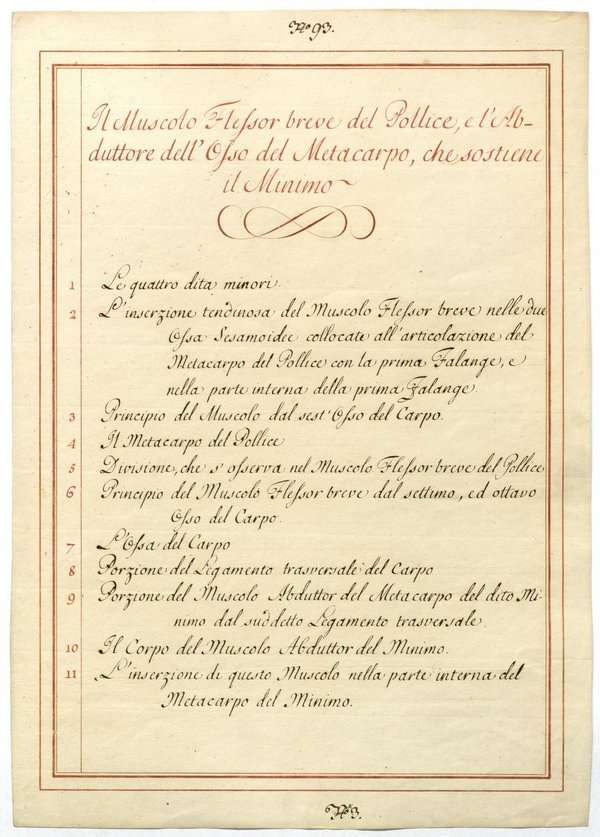 No 93.
Il Muscolo Flessor breve del Pollice, e l'Ab-
duttore dell'Osso del Metacarpo, che sostiene
il Minimo
1 Le quattro dita minori.
2 L'inserzione tendinosa del Muscolo Flessor breve nelle due
Ossa Sesamoidee collocate all'articolazione del
Metacarpo del Pollice con la prima Falange, e
nella parte interna della prima Falange.
3 Principio del Muscolo dal sest'Osso del Carpo.
4 Il Metacarpo del Pollice
5 Divisione, che s'osserva nel Muscolo Flessor breve del Pollice
6 Principio del Muscolo Flessor breve dal settimo, ed ottavo
Osso del Carpo.
7 L'Ossa del Carpo
8 Porzione del Legamento trasversale del Carpo
9 Porzione del Muscolo Abduttor del Metacarpo del dito Mi-
nimo dal suddetto Legamento trasversale.
10 Il Corpo del Muscolo Abduttor del Minimo.
11 L'inserzione di questo Muscolo nella parte interna del
Metacarpo del Minimo.
No 3.